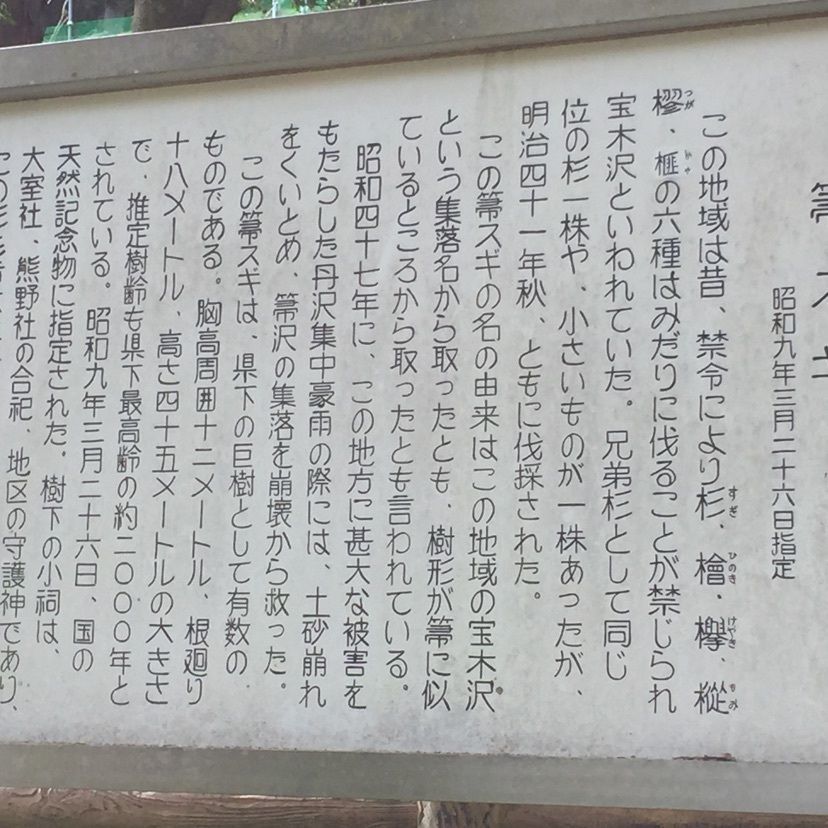 箒スギ
昭和九年三月二十六日指定
この地域は昔、禁令により杉、檜、欅、樅
すぎ ひのき けやき もみ
樛、榧の六種はみだりに伐ることが禁じられ
つが かや
宝木沢といわれていた。兄弟杉として同じ
位の杉一株や、小さいものが一株あったが、
明治四十一年秋、ともに伐採された。
この箒スギの名の由来はこの地域の宝木沢
という集落名から取ったとも、樹形が箒に似
ているところから取ったとも言われている。
昭和四十七年に、この地方に甚大な被害を
もたらした丹沢集中豪雨の際には、土砂崩れ
をくいとめ、箒沢の集落を崩壊から救った。
この箒スギは、県下の巨樹として有数の
ものである。胸高周囲十二メートル、根廻り
十八メートル、高さ四十五メートルの大きさ
で、推定樹齢も県下最高齢の約二〇〇〇年と
されている。昭和九年三月二十六日、国の
天然記念物に指定された。樹下の小祠は、
大室社、熊野社の合祀、地区の守護神であり、